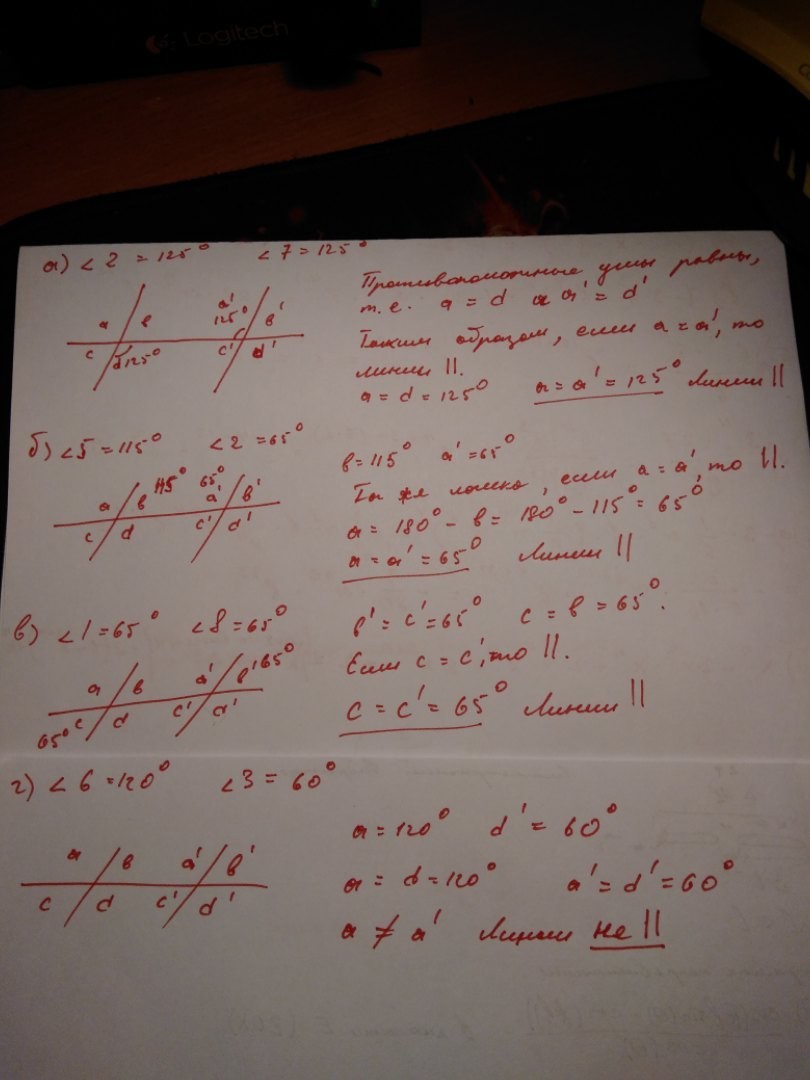 Logitech
а) <2 = 125° <7 = 125°
a b a' 125° b'
c d 125° c' d'
Противоположные углы равны,
т.е. a = d и a' = d'
Таким образом, если a = a', то
линии ||.
a = d = 125° a = a' = 125° Линии ||
б) <5 = 115° <2 = 65°
a b 115° 65° a' b'
c d c' d'
b = 115° a' = 65°
Та же логика, если a = a', то ||.
a = 180° - b = 180° - 115° = 65°
a = a' = 65° Линии ||
в) <1 = 65° <8 = 65°
a b a' b' 65°
65° c d c' d'
b' = c' = 65° c = b = 65°.
Если c = c', то ||.
c = c' = 65° Линии ||
г) <6 = 120° <3 = 60°
a b a' b'
c d c' d'
a = 120° d' = 60°
a = d = 120° a' = d' = 60°
a ≠ a' Линии не ||